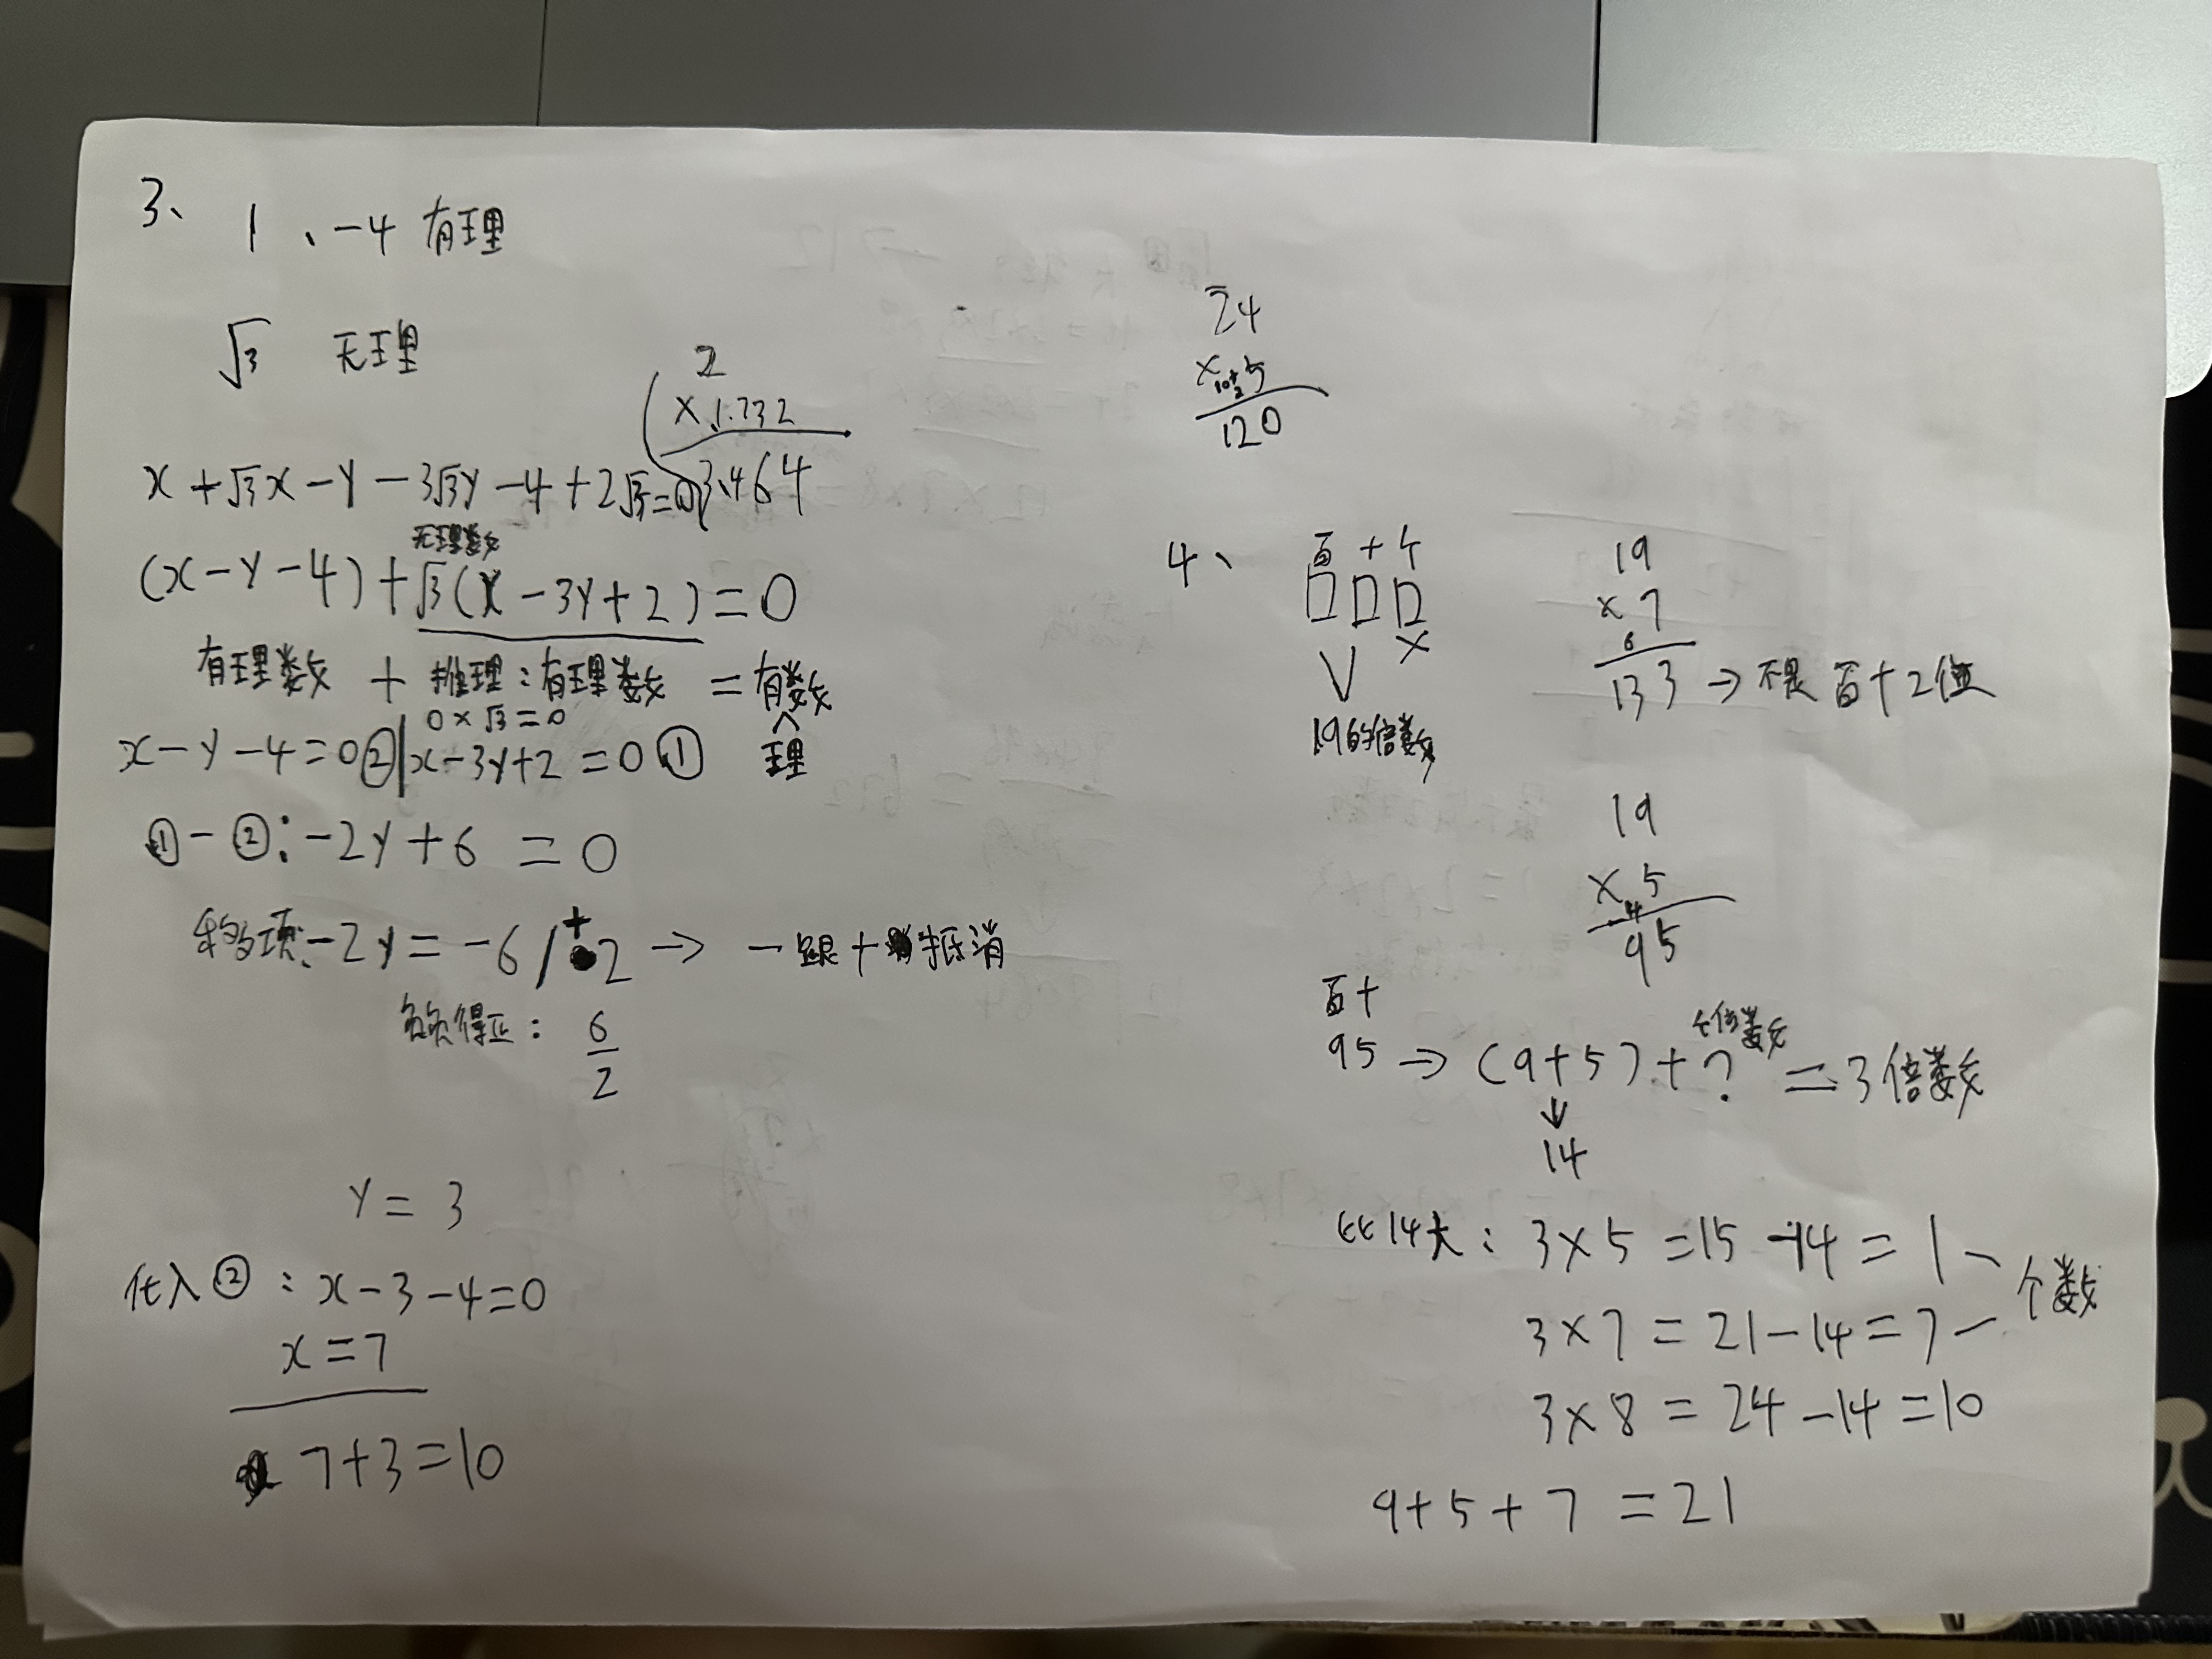 3、 1、-4 有理
√3 无理
2
×1.732
3.464
x+√3x-y-3√3y-4+2√3=0
无理数
(x-y-4)+√3(x-3y+2)=0
有理数 + 推理:有理数 = 有理数
0×√3=0
x-y-4=0② | x-3y+2=0①
①-②:-2y+6=0
移项:-2y=-6/+2 → -跟+抵消
负负得正: 6
2
y=3
代入②:x-3-4=0
x=7
7+3=10
24
×5
10+2
120
4、 百十个
□□□
∨ ×
19的倍数
19
×7
6
133 → 不是百十2位
19
×5
4
95
百十
95 → (9+5)+? =3倍数
个位数
↓
14
比14大:3×5=15-14=1
3×7=21-14=7
个数
3×8=24-14=10
9+5+7=21